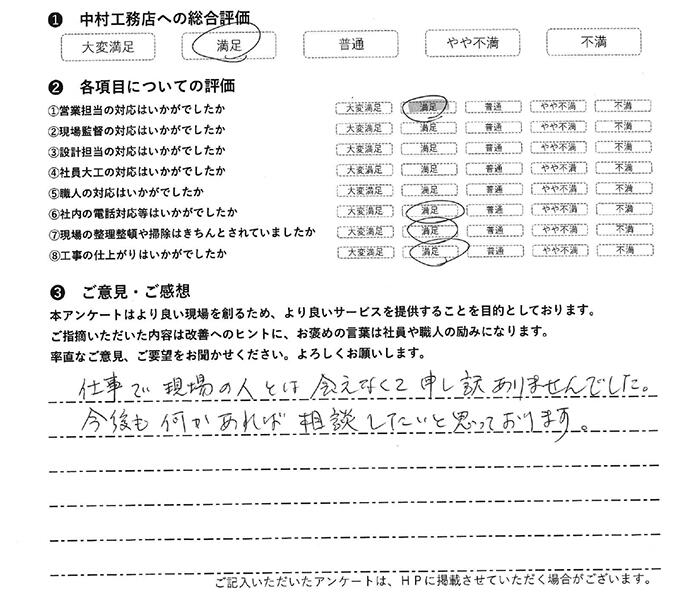 ❶ 中村工務店への総合評価
大変満足 満足 普通 やや不満 不満
❷ 各項目についての評価
①営業担当の対応はいかがでしたか 大変満足 満足 普通 やや不満 不満
②現場監督の対応はいかがでしたか 大変満足 満足 普通 やや不満 不満
③設計担当の対応はいかがでしたか 大変満足 満足 普通 やや不満 不満
④社員大工の対応はいかがでしたか 大変満足 満足 普通 やや不満 不満
⑤職人の対応はいかがでしたか 大変満足 満足 普通 やや不満 不満
⑥社内の電話対応等はいかがでしたか 大変満足 満足 普通 やや不満 不満
⑦現場の整理整頓や掃除はきちんとされていましたか 大変満足 満足 普通 やや不満 不満
⑧工事の仕上がりはいかがでしたか 大変満足 満足 普通 やや不満 不満
❸ ご意見・ご感想
本アンケートはより良い現場を創るため、より良いサービスを提供することを目的としております。
ご指摘いただいた内容は改善へのヒントに、お褒めの言葉は社員や職人の励みになります。
率直なご意見、ご要望をお聞かせください。よろしくお願いします。
仕事で現場の人とは会えなくて申し訳ありませんでした。
今後も何かあれば相談したいと思っております。
ご記入いただいたアンケートは、HPに掲載させていただく場合がございます。